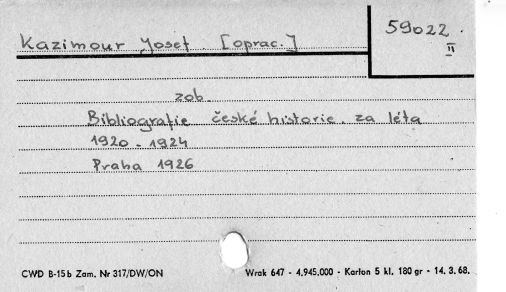 Kazimour Josef. [oprac.]
59022
II
zob.
Bibliografie české historie. za léta
1920 - 1924
Praha 1926
CWD B-15b Zam. Nr 317/DW/ON
Wrak 647 - 4.945.000 - Karton 5 kl. 180 gr - 14. 3. 68.